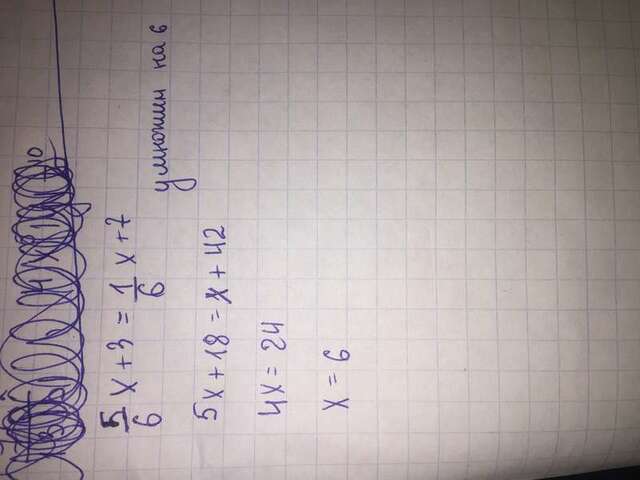 5/6 x + 3 = 1/6 x + 7
умножим на 6
5x + 18 = x + 42
4x = 24
x = 6